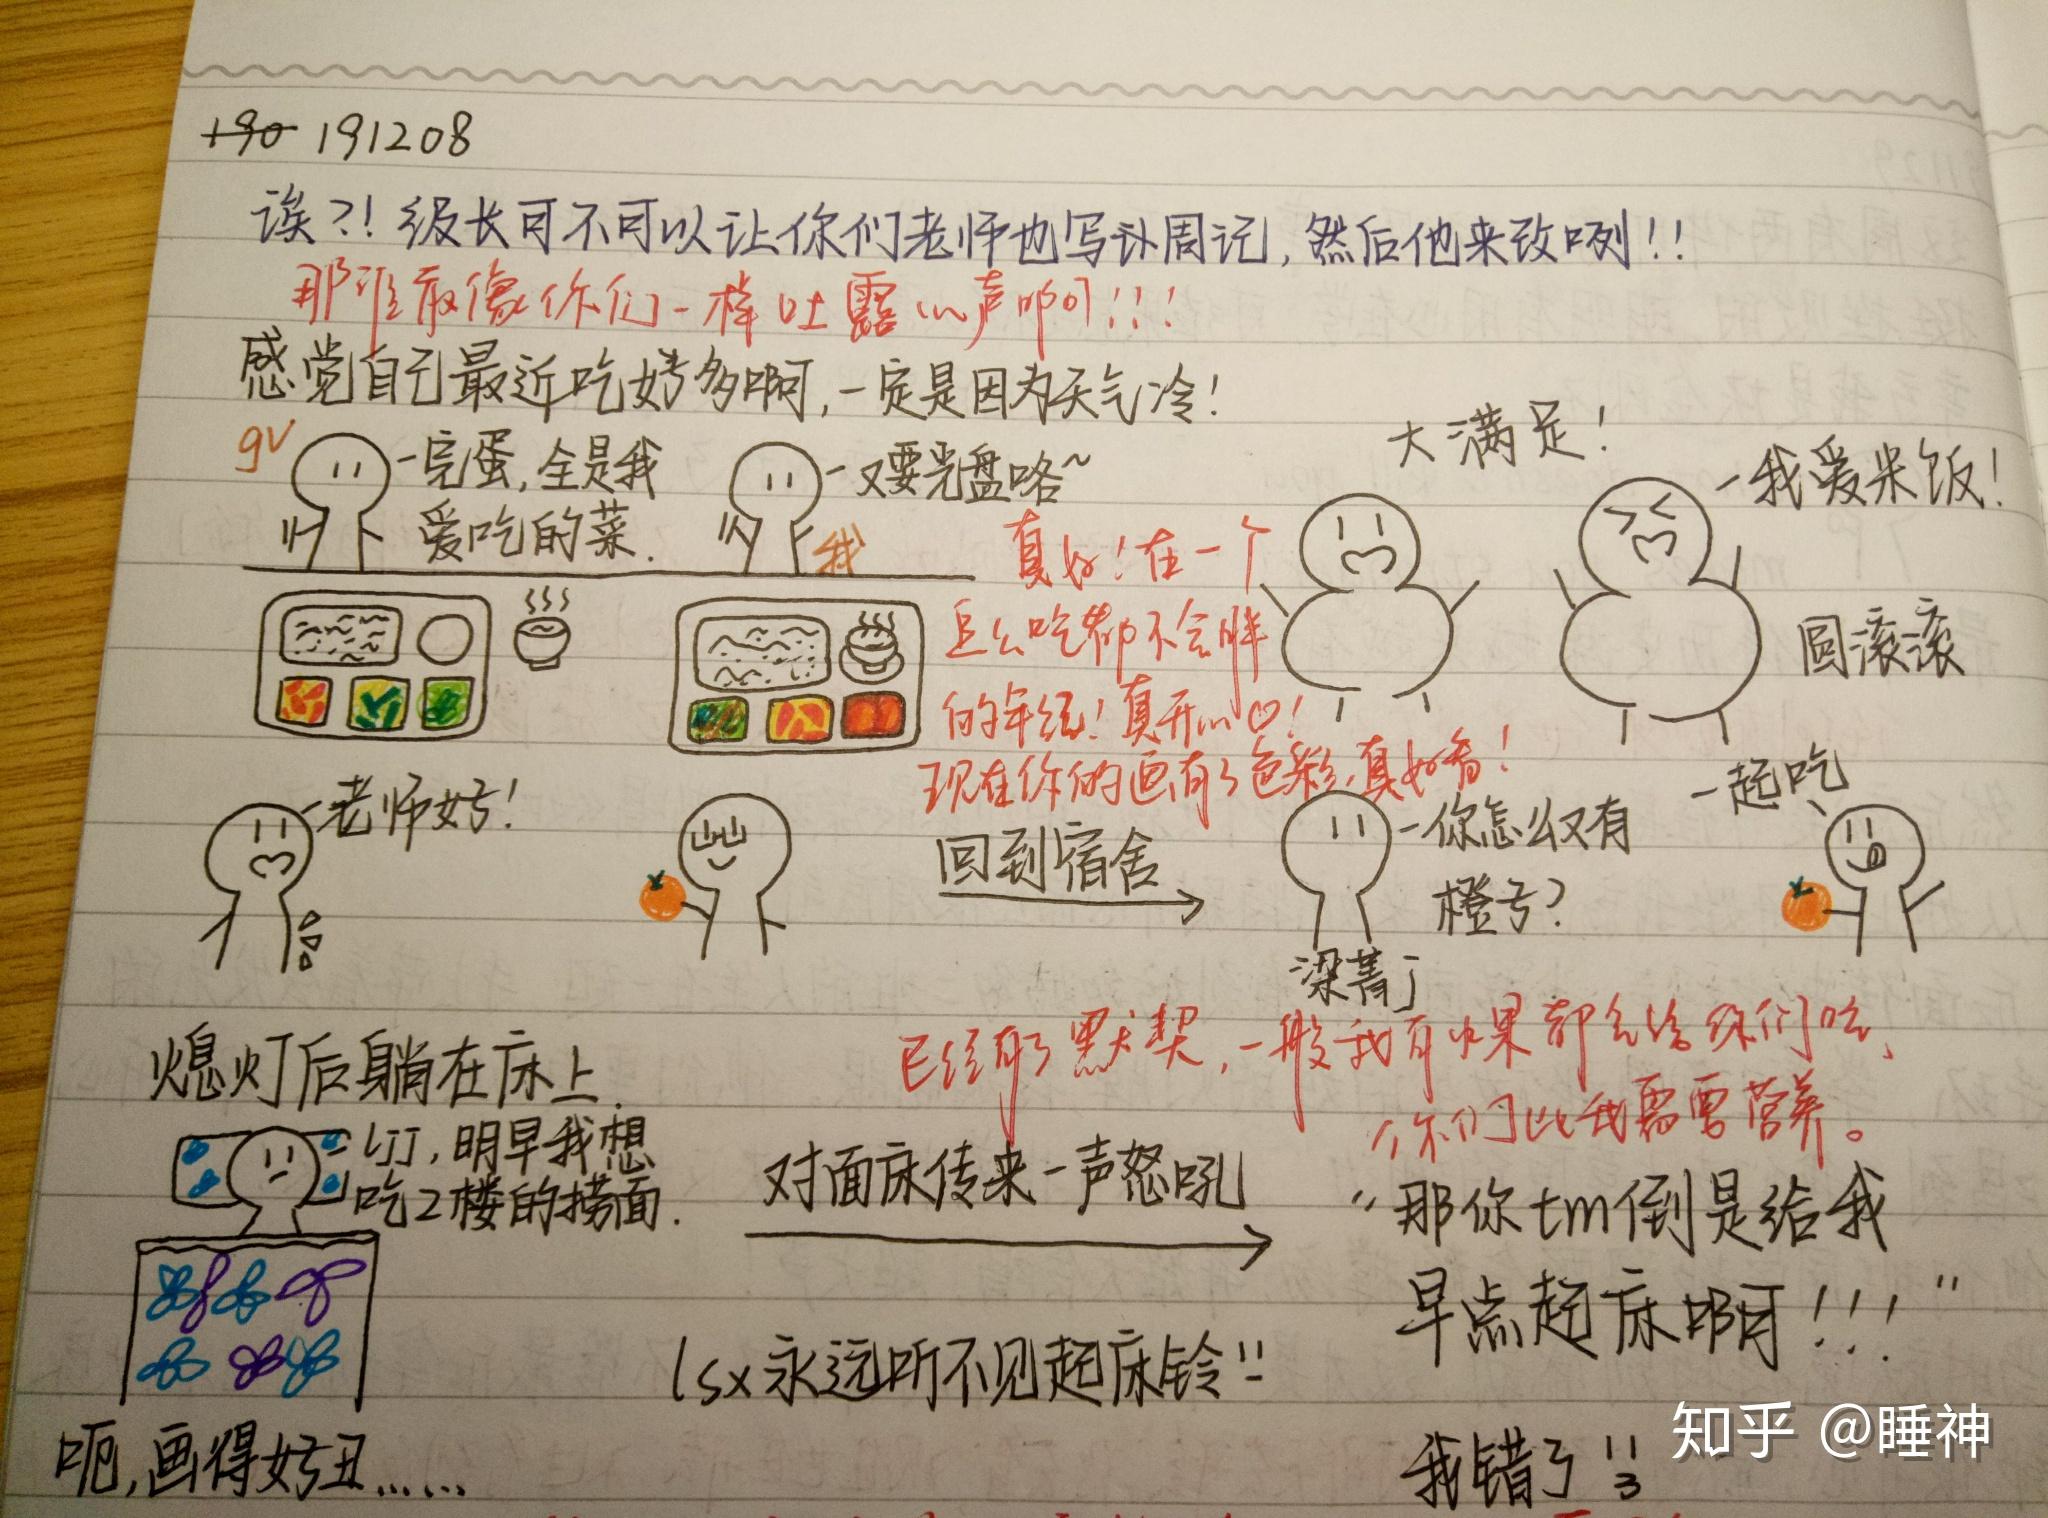 191208
诶?!级长可不可以让你们老师也写计周记,然后他来改咧!!
那谁敢像你们一样吐露心声啊!!!
感觉自己最近吃好多啊,一定是因为天气冷!
gv
一完蛋,全是我
爱吃的菜.
一又要光盘咯~
我
大满足!
一我爱米饭!
圆滚滚
真好!在一个
怎么吃都不会胖
的年纪!真开心!
现在你的画有了色彩,真好看!
一老师好!
回到宿舍
一你怎么又有
橙子?
一起吃
梁菁
已经有了默契,一般我有水果都会给你们吃,
你们比我需要营养。
熄灯后躺在床上.
一ljj,明早我想
吃2楼的捞面.
对面床传来一声怒吼
“那你tm倒是给我
早点起床啊!!!”
lsx永远听不见起床铃!!
呃,画得好丑......
我错了
知乎 @睡神